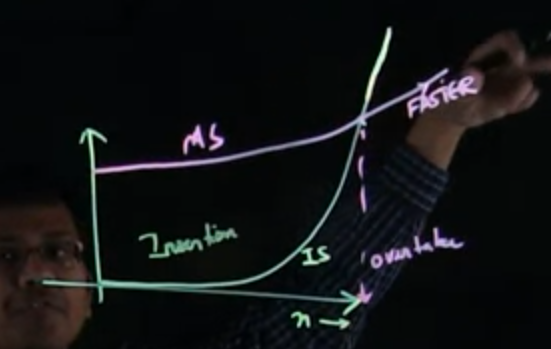 MS
FASTER
Insertion
IS
overtake
n →